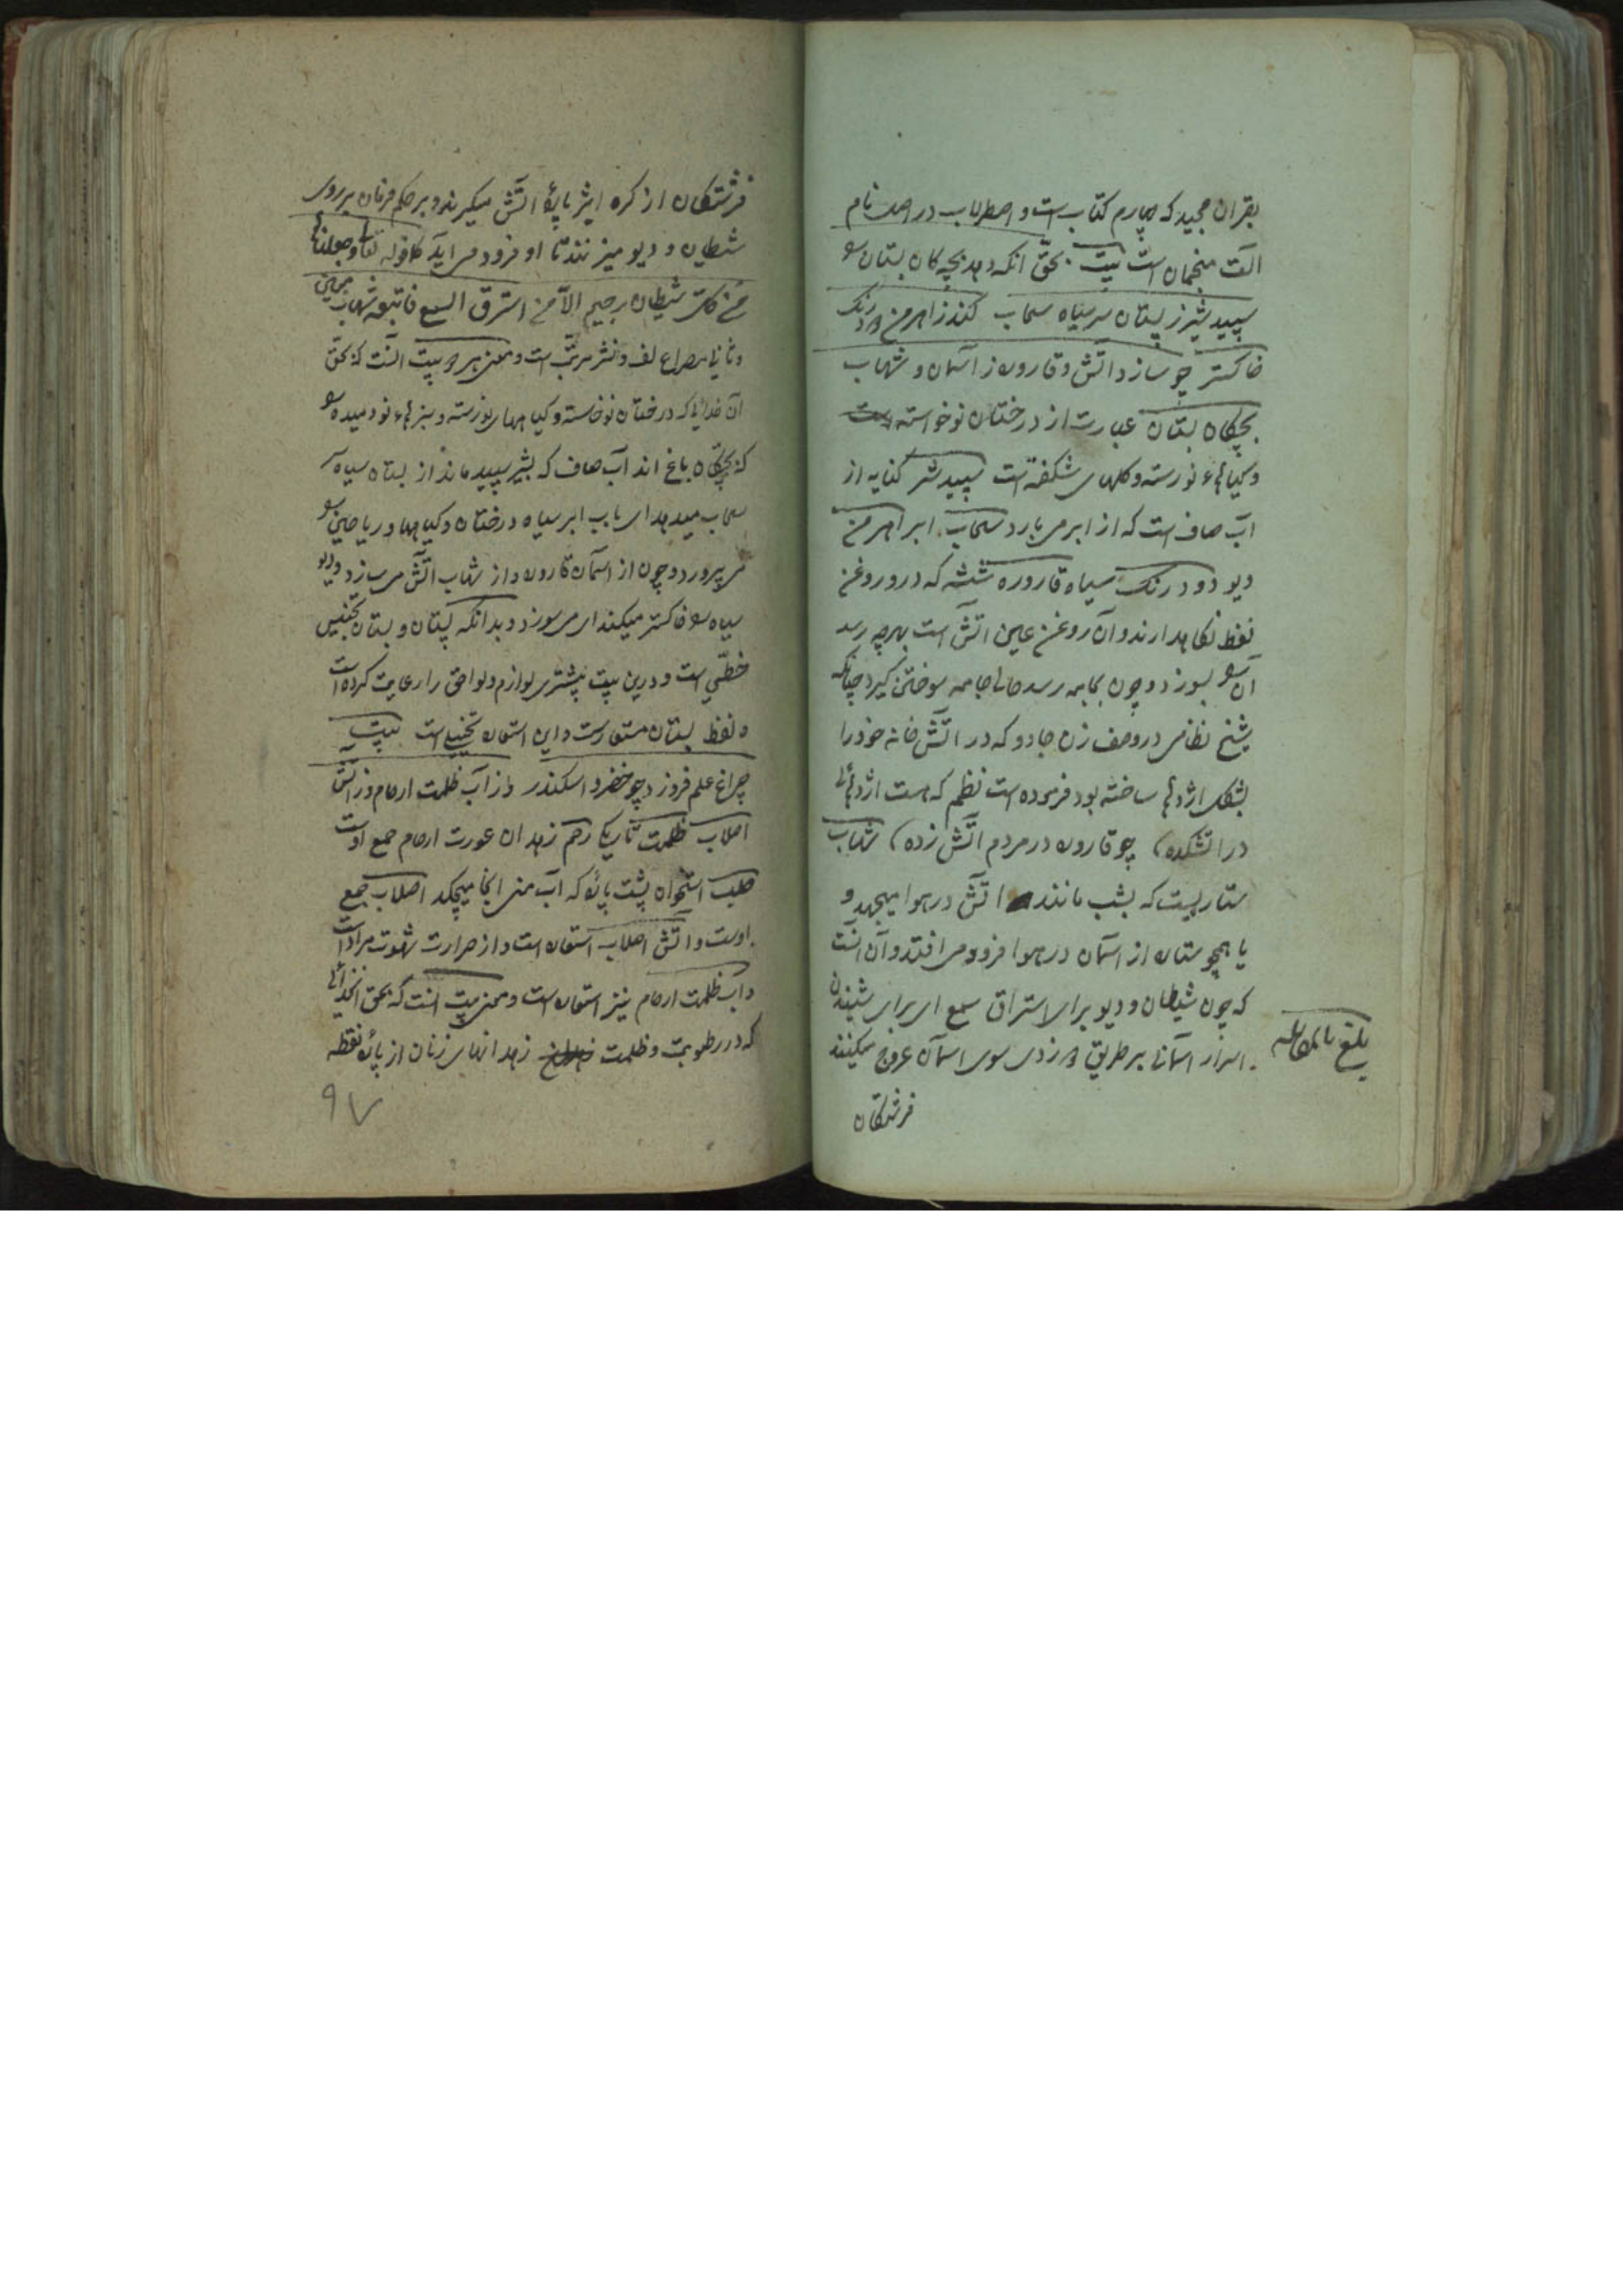 بقران مجید که چهارم کتاب است و اصطرلاب در اصل نام
الت منجمان است بیت بحق انکه دهد بچه کان بستان را
سپید شیر ز پستان سر سیاه سحاب کند ز اهرمن دود رنک
خاکستر چو سازد اتش و قاروره ز آسمان و شهاب
بچکان بستان عبارت از درختان نوخواسته است
و کیاهاء نورسته و کلهای شکفته است سپید شیر کنایه از
آب صاف است که از ابر می بارد سحاب ابر اهرمن
دیو دود رنک سیاه قاروره شیشه که درو روغن
نفط نکاهدارند و آن روغن عین اتش است بهرچه رسد
آن را بسوزد و چون بجامه رسد جامه سوختن کیرد چنانکه
شیخ نظامی در وصف زن جادو که در اتش خانه خود را
بشکل اژدها ساخته بود فرموده است نظم که هست اژدهائی
در اتشکده چو قاروره در مردم آتش زده شهاب
ستاره است که بشب مانند اتش در هوا میجهد و
یا همچو ستاره از اسمان در هوا فرود می افتد و آن آنست
که چون شیطان و دیو برای استراق سمع ای برای شنیدن
اسرار آسمانی بر طریق دزدی سوی اسمان عروج میکنند
فرشتکان
بلغ بالمقابله
فرشتکان از کره اثیر پارهٔ اتش میکیرند و بر حکم فرمان بر روی
شیطان و دیو میزنند تا او فرود می آید کقوله تعالی وجعلناها
من کل شیطان رجیم الا من استرق السمع فاتبعه شهاب مبین
و ثانی مصراع لف و نشر مرتب است و معنی هر دو بیت آنست که بحق
آن خدائی که درختان نوخاسته و کیاههای نورسته و سبزهاء نودمیده را
که بچکان باغ اند آب صاف که بشیر سپید ماند از پستان سیاه
سحاب میدهد ای باب ابر سیاه درختان و کیاهها و ریاحین را
می پرورد و چون از آسمان قاروره و از شهاب آتش می سازد و دیو
سیاه را خاکستر میکند ای می سوزد و بدانکه پستان و بستان تجنیس
خطی است و درین بیت بیشتری لوازم و لواحق را رعایت کرده است
و لفظ پستان مستعار است و این استعاره تخییلی است بیت
چراغ علم فروزد چو خضر و اسکندر در آب ظلمت ارحام وز آتش
اصلاب ظلمت تاریکی رحم زهدان عورت ارحام جمع اوست
صلب استخوان پشت که آب منی از آنجا میچکد اصلاب جمع
اوست و آتش اصلاب استعاره است و از حرارت شهوت مراد است
و آب ظلمت ارحام نیز استعاره است و معنی بیت آنست که بحق آن خدائی
که در رطوبت و ظلمت زهدانهای زنان از پارهٔ نطفه
۹۷